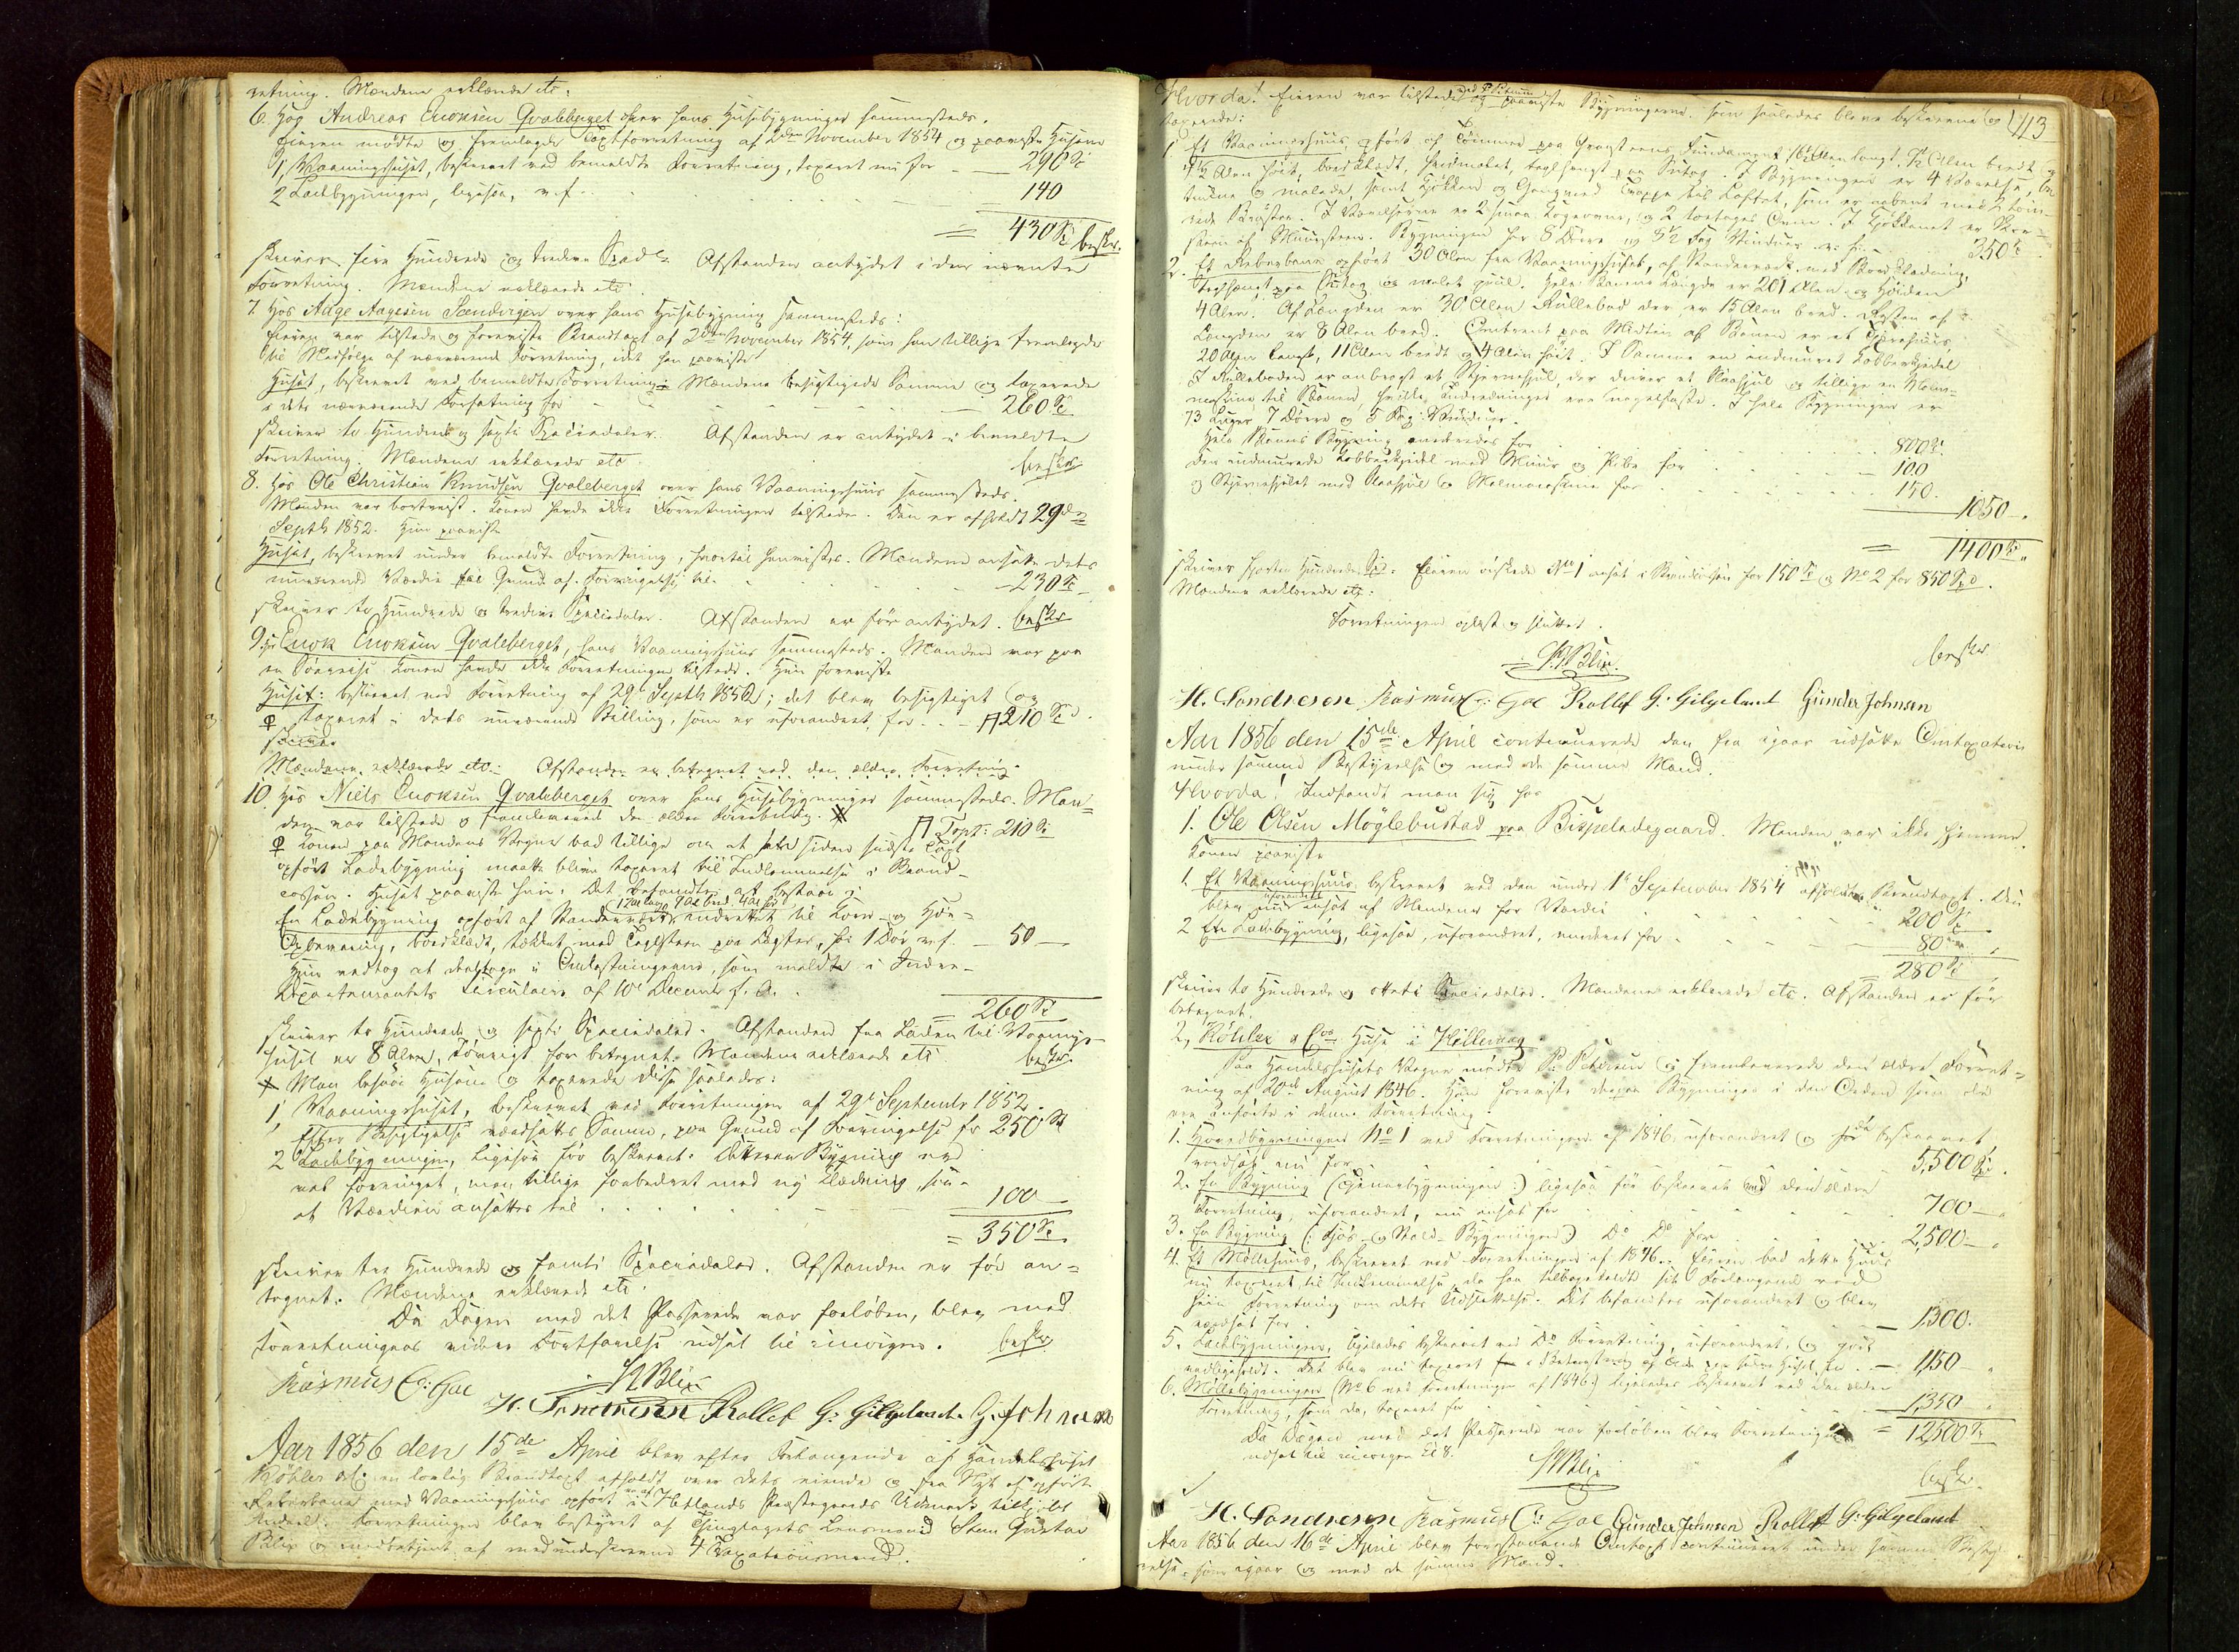 retning. Mændene erklærede etc:
6. Hos Andreas Enoksen Qvaleberget over hans Husebygninger sammesteds.
Eieren mødte og fremlagde Taxtforretning af 2den November 1854 og paaviste Husene
1, Vaaningshuset, beskrevet ved bemeldte Forretning, taxeret nu for - 290 Sp
2 Ladebygningen, ligesaa, n.f. 140
= 430 Sp beskr.
skriver fire Hundrede og tredive Spdlr. Afstanden antydet i den nævnte
Forretning. Mændene erklærede etc.
7. Hos Aage Aagesen Sandvigen over hans Husebygning sammesteds:
Eieren var tilstede og foreviste Brandtaxt af 2den November 1854, som han tillige fremlagde
til Medfølge af nærværende Forretning, idet han paaviste
Huset, beskrevet ved bemeldte Forretning. Mændene besigtigede Samme og taxerede
i dets nærværende Forfatning for - 260 Sp
skriver to Hundrede og sexti Speciedaler. Afstanden er antydet i bemeldte
Forretning. Mændene erklærede etc. beskr
8. Hos Ole Christian Knudsen Qvaleberget over hans Vaaningshuus sammesteds.
Manden var bortreist. Konen havde ikke Forretningen tilstede. Den er afholdt 29de
Septbr 1852. Hun paaviste
Huset, beskrevet under bemeldte Forretning, hvortil henvises. Mændene ansatte dets
nuværende Værdie paa Grund af Forringelse til - 230 Sp
skriver to Hundrede og tredive Speciedaler. Afstanden er før antydet. beskr
9. Hos Enok Enoksen Qvaleberget, hans Vaaningshuus sammesteds. Manden var paa
en Søereise. Konen havde ikke Forretningen tilstede. Hun foreviste
Huset: beskrevet ved Forretning af 29de Septbr 1852; det blev besigtiget og
taxeret i dets nuværende Stilling, som er uforandret, for - 210 Sp
skriver
Mændene erklærede etc. Afstanden er betegnet ved den ældre Forretning
10 Hos Niels Enoksen Qvaleberget over hans Husebygninger sammesteds. Man-
den var tilstede og fremleverede den ældre Forretning. Tspt: 210 Sp
Konen paa Mandens Vegne bad tillige om at en siden sidste Taxt
opført Ladebygning maatte blive taxeret til Indlemmelse i Brand-
cassen. Huset paaviste hun. Det befandtes at bestaae i
12 Al lang 7 Al bred 4 Al høi
En Ladebygning opført af Standerværk, indrettet til Korn- og Høe-
bevaring, bordklædt, tækket med Taglsteen paa Lægter, har 1 Dør n.f. - 50 -
Hun vedtog at deeltage i Omkostningerne, som meldt i Indre-
Departementets Circulaire af 10de Decembr f. A.
= 260 Sp
skriver to Hundrede og sexti Speciedaler. Afstanden fra Laden til Vaanings-
huset er 8 Alen, Forøvrigt før betegnet. Mændene erklærede etc beskr
Man besaae Husene og taxerede disse saaledes:
1, Vaaningshuset, beskrevet ved Forretningen af 29de September 1852.
Efter Besigtigelse værdsattes Samme, paa Grund af Forringelse for 250 Sp
2 Ladebygningen, ligesaa før beskrevet. Dette er Bygning
vel forringet, men tillige forbedret med ny Klædning, saa-
at Værdien ansættes til 100 -
= 350 Sp.
skriver tre Hundrede og femti Speciedaler. Afstanden er før an-
tegnet. Mændene erklærede etc.
Da Dagen med det Passerede var forløben, blev med
Forretningens videre Fortsættelse udsat til imorgen. beskr
SGBlix
Rasmus C: Goe H. Sondresen Rollef G: Gilgeland. G. Johnsen
Aar 1856 den 15de April blev efter Forlangende af Handelshuset
Køhler & C: en lovlig Brandtaxt afholdt over dets eiende og paa Nyt opførte
Reberbane med Vaaningshuus opført i Hetlands Præstegaards Udmark tilhørende
Forretningen blev bestyret af Thinglagets Lensmand Sten Gustav
Blix og medbetjent af medunderskrevne 4 Taxationsmænd.
113
Hvorda! Eieren var tilstede og paaviste Bygningerne, som saaledes bleve beskrevne og
taxerede:
1 Et Vaaningshuus, opført af Tømmer paa Graasteens Fundament, Alen langt, Alen bredt og
4½ Alen høit, bordklædt, hvidmalet, teglhængt paa Sutag. I Bygningen er 4 Værelser,
malede, samt Kjøkken og Gang med Trappe til Loftet, som er aabent med Tøm-
mer Røster. I Værelserne er 2 smaa Kogeovne, og 2 toetages Ovne. I Kjøkkenet er Skor-
steen af Muursteen. Bygningen har 8 Døre og 8½ Fag Vinduer n.f. 350 Sp
2. En Reberbane opført 30 Alen fra Vaaningshuset, af Standerværk med Bordklædning,
teglhængt paa Sutag og malet guul. Hele Banens Længde er 201 Alen og Høiden
4 Alen. Af Længden er 30 Alen Rullebod der er 15 Alen bred. Resten af
Længden er 8 Alen bred. Omtrent paa Midten af Banen er et Tjærehuus,
20 Alen langt, 11 Alen bredt og 4 Alen høit. I Samme en indmuret Kobberkjedel
I Rulleboden er anbragt et Stjernehjul, der driver et Slaahjul og tillige en
maskine til Banen, hvilke Indretninger ere nagelfaste. I hele Bygningen er
73 Luger 7 Døre og 5 Fag Vinduer.
Hele Banens Bygning vurderedes for 800 Sp
Den indmurede Kobberkjedel med Muur og Pibe for 100
og Stjernehjulet med Slaahjul og maskine for 150. 1050 -.
= 1400 Sp.
skriver fjorten Hundrede Spd. Eieren ønskede No 1 ansat i Brandcassen for 150 Sp og No 2 for 850 Spd.
Mændene erklærede etc.
Forretningen oplæst og sluttet.
SGBlix. beskr
H. Sondresen Rasmus C: Goe Rollef G: Gilgeland Gunder Johnsen
Aar 1856 den 15de April continuerede den fra igaar udsatte Omtaxation
under samme Bestyrelse og med de samme Mænd.
Hvorda! Indfandt man sig hos
1. Ole Olsen Møglebustad paa Bispeladegaard. Manden var ikke hjemme.
Konen paaviste
1. Et Vaaningshuus, beskrevet ved den under 1de September 1854 afholdte Brandtaxt. Den
blev uforandret ansat af Mændene for Værdie 200 Sp.
2 En Ladebygning, ligesaa, uforandret, vurderet for - 80 -
= 280 Sp
skriver to Hundrede og otteti Speciedaler. Mændene erklærede etc. Afstanden er før
betegnet.
2, Køhler & Cos Huse i Hillevaag
Paa Handelshusets Vegne mødte P. Pedersen og fremleverede den ældre Forret-
ning af 20de August 1846. Han foreviste derpaa Bygningen i den Orden som de
ere anførte i denne Forretning.
1. Hovedbygningen No 1 ved Forretningen af 1846, uforandret og før beskrevet
værdsat nu for 5,500 Sp.
2. En Bygning ( ) ligesaa før beskrevet ved den ældre
Forretning, uforandret, nu ansat for 700 -
3. En Bygning (: Fjøs- og Stald-Bygningen:) Do Do for 2,500 -
4. Et Møllehuus, beskrevet ved Forretningen af 1846. Eieren bad dette Huus
nu taxeret til Indlemmelse, da han tilbagekaldte sit Forlangende ved
hiin Forretning om dets Udslettelse. Det befandtes uforandret og blev
værdsat for - 1,300.
5. Ladebygningen, ligeledes beskrevet ved Do Forretning, uforandret, og godt
vedligeholdt. Det blev nu taxeret - 1,150 -
6. Møllebygningen (No 6 ved Forretningen af 1846:) ligeledes beskrevet ved den ældre
Forretning, som da, taxeret for - 1,350
Da Dagen med det Passerede var forløben blev Forretningen = 12,500 Sp
udsat til imorgen Kl 8.
SGBlix beskr.
H. Sondresen Rasmus C: Goe Gunder Johnsen Rollef G: Gilgeland
Aar 1856 den 16de April blev foranstaaende Omtaxt continueret under samme Besty-
relse, som igaar og med de samme Mænd.